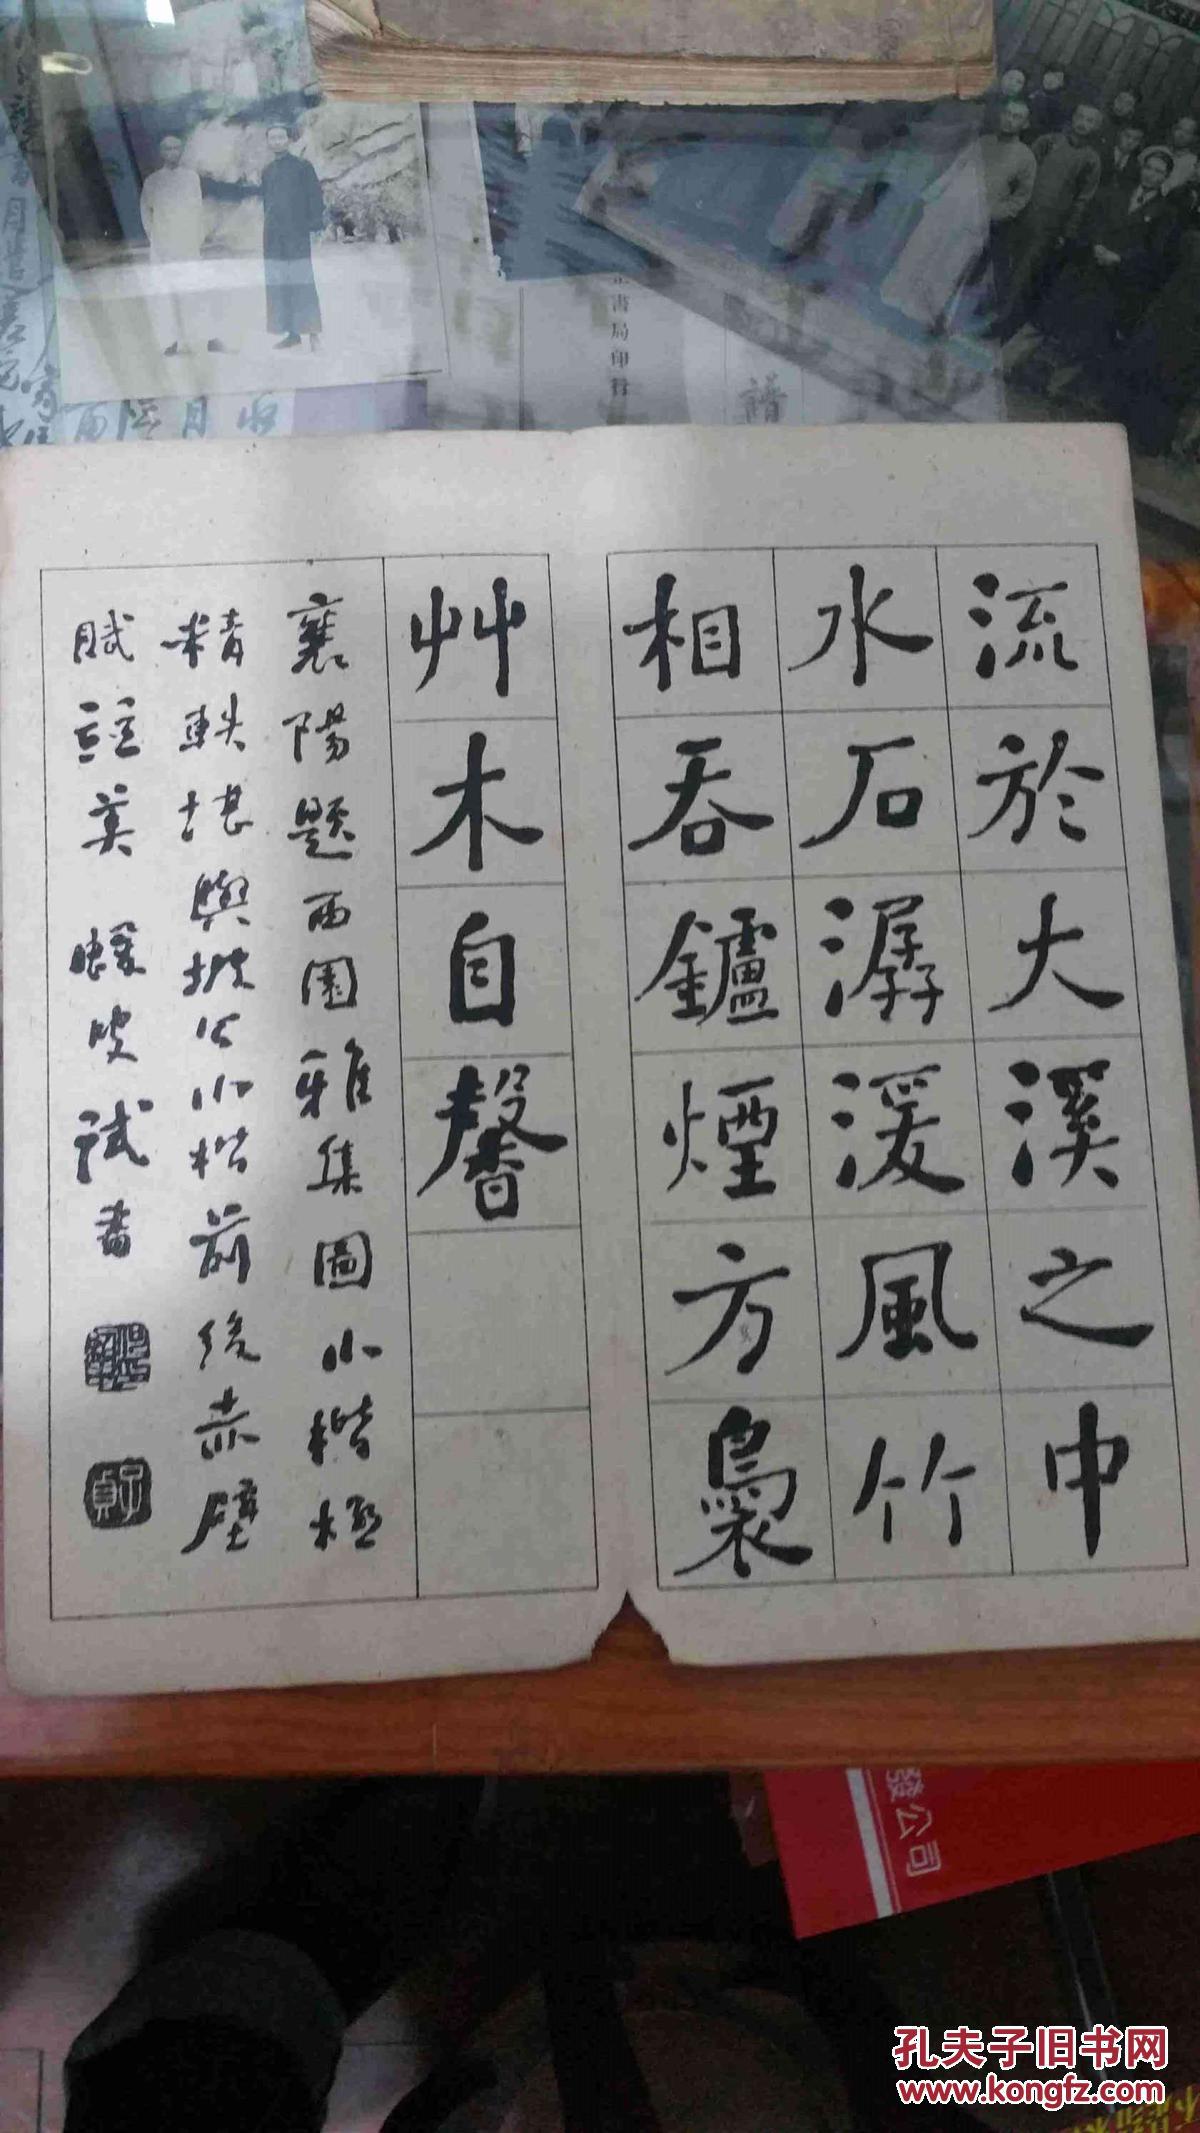 流於大溪之中
水石潺湲風竹
相吞鑪煙方裊
艸木自馨
襄陽題西園雅集圖小楷極
精軼堪與坡公小楷前後赤壁
賦竝美 蝯叟試書
書局印行
譜
公司
孔夫子旧书网
www.kongfz.com